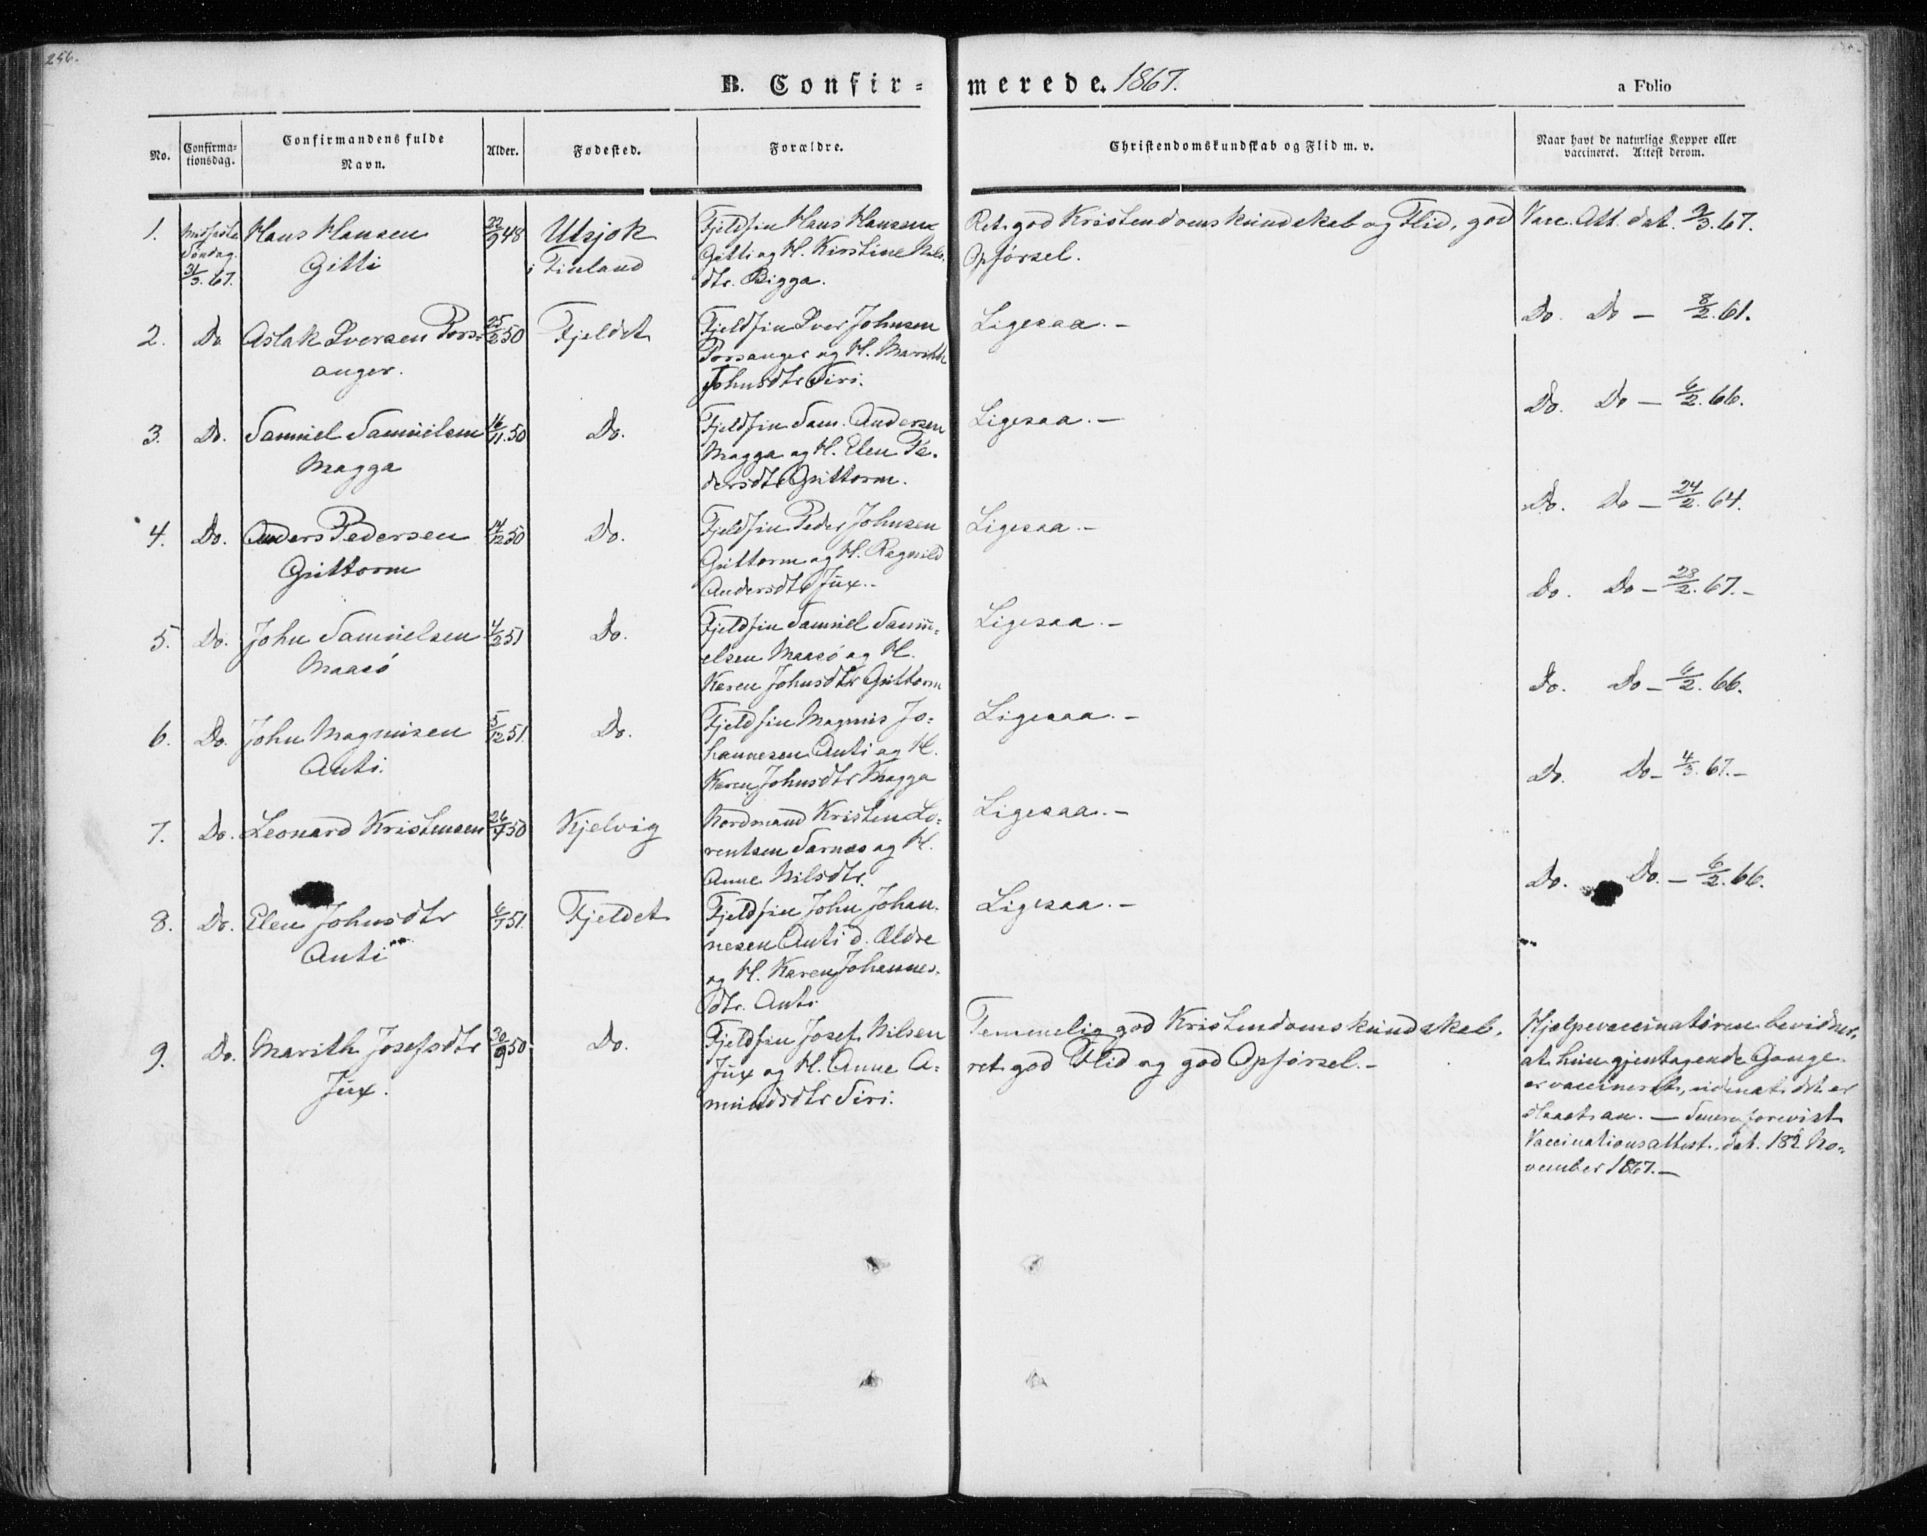 256.
B. Confir=merede. 1867.
a Folio
No.
Confirma-
tionsdag.
Confirmandens fulde
Navn.
Alder.
Fødested.
Forældre.
Christendomskundskab og Flid m. v.
Naar havt de naturlige Kopper eller
vaccineret. Attest derom.
1.
Søndag
31/3.67.
Hans Hansen
Gitti
22/9 48
Utsjok
i Finland
Fjeldfin Hans Hansen
Gitti og H. Kirstine Nils
dtr. Bigga.
Ret god Kristendomskundskab og Flid, god
Opførsel.
Vacc. Att. dat. 2/3.67.
2.
Do
Aslak Iversen Pors=
anger.
25/2 50
Fjeldet
Fjeldfin Iver Johnsen
Porsanger og H. Marith
Johnsdtr Siri.
Ligesaa.-
Do. Do - 8/2.61.
3.
Do.
Samuel Samuelsen
Magga
16/11.50
Do.
Fjeldfin Sam. Andersen
Magga og H. Elen Pe-
dersdtr Guttorm.
Ligesaa.-
Do. Do - 6/2.66.
4.
Do.
Anders Pedersen
Guttorm
14/12 50
Do.
Fjeldfin Peder Johnsen
Guttorm og H. Ragnild
Andersdtr Jux.-
Ligesaa.-
Do. Do - 24/2.64.
5.
Do.
John Samuelsen
Maasø
4/2 51
Do.
Fjeldfin Samuel Samu=
elsen Maasø og H.
Karen Johnsdtr Guttorm
Ligesaa.-
Do. Do - 28/2.67.-
6.
Do.
John Magnusen
Anti.
5/12 51.
Do.
Fjeldfin Magnus Jo=
hannesen Anti og H.
Karen Johnsdtr Magga
Ligesaa.-
Do. Do - 6/2.66.
7.
Do.
Leonard Kristensen
26/7 50
Kjelvig
Nordmand Kristen Lo=
rentsen Sarnæs og H.
Anne Nilsdtr.
Ligesaa.-
Do. Do - 4/3.67.-
8.
Do.
Elen Johnsdtr
Anti
6/7 51.
Fjeldet
Fjeldfin John Johan-
nesen Anti d. Ældre
og H. Karen Johannes-
dtr. Anti
Ligesaa.-
Do. Do. - 6/2.66.
9.
Do.
Marith Josefsdtr
Jux.
30/9 50
Do.
Fjeldfin Josef Nilsen
Jux og H. Anne A=
mundsdtr Siri.
Temmelig god Kristendomskundskab,
ret god Flid og god Opførsel.-
Hjælpevaccinatøren bevidner,
at hun gjentagende Gange
er vaccineret, uden at det er
slaaet an. - Senere forevist
Vaccinationsattest dat. 18 No=
vember 1867.-